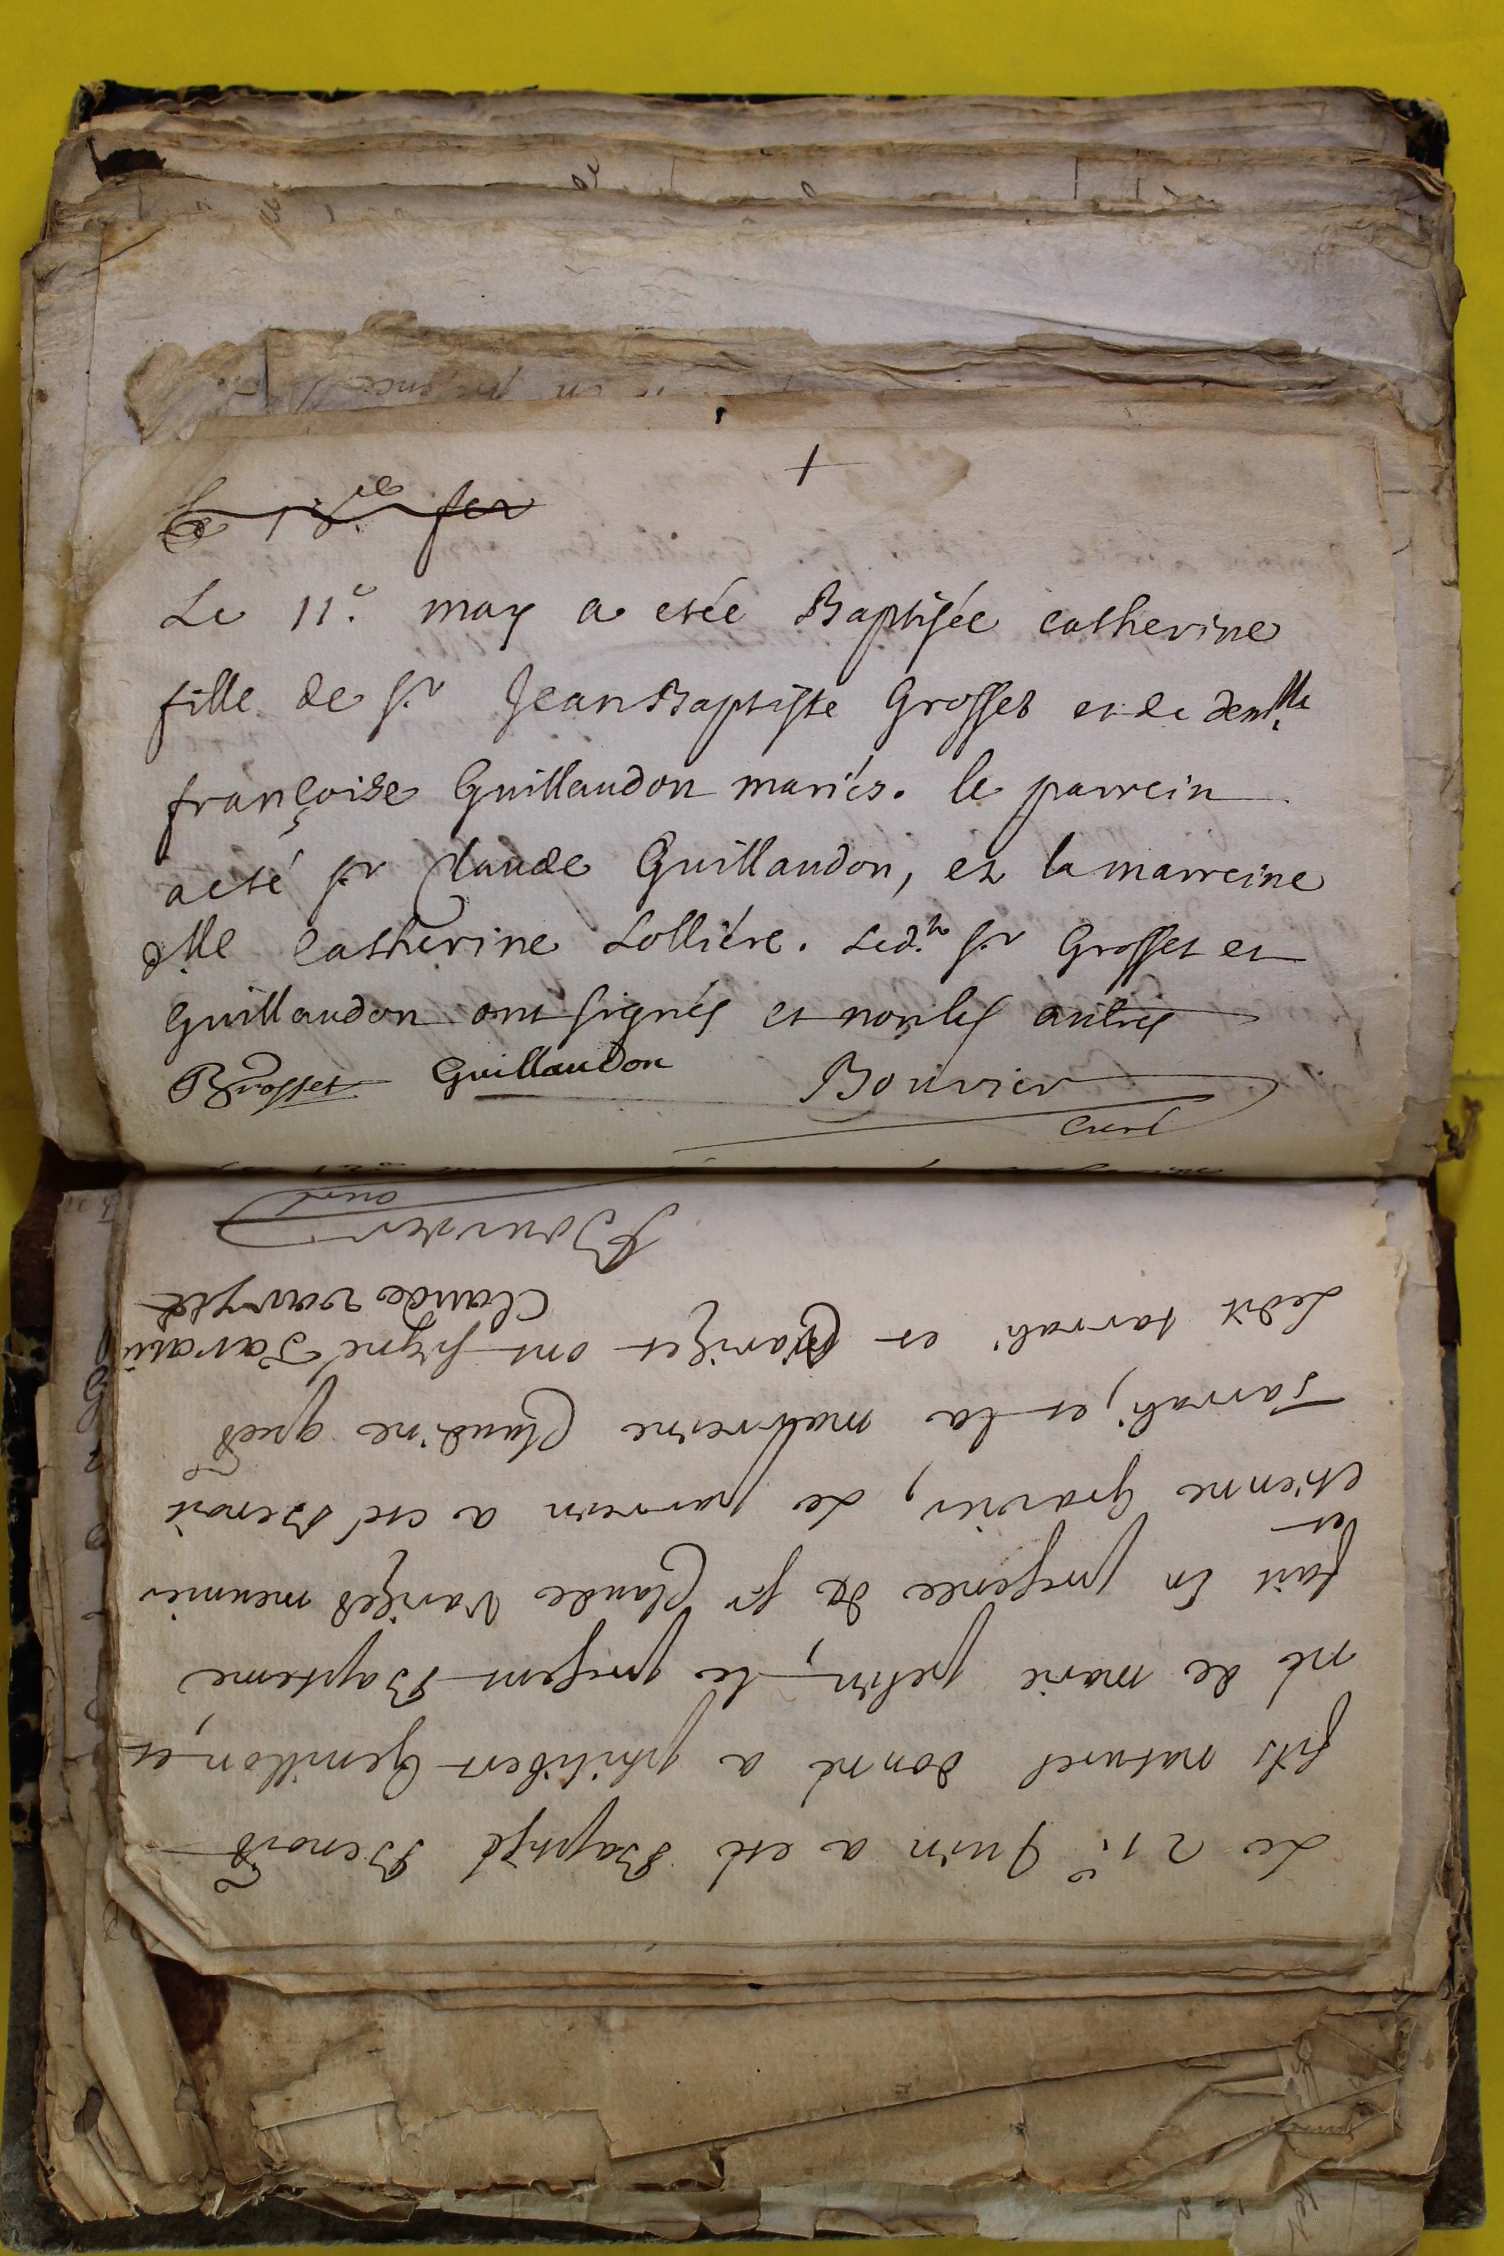 Le 11e. may a etée Baptisée catherine
fille de sr JeanBaptiste Grosset et de demlle
françoise Guillaudon mariés. le parrein
a eté sr Claude Guillaudon, et la marreine
dlle Catherine Lollière. Led.ts sr Grosset et
Guillaudon ont signés et non les autres
Grosset Guillaudon Bouvier
curé
Le 21e. Juin a eté Baptisé Benoit
fils naturel donné a philibert Genillon, et
né de marie petin, le present Bapteme
fait En presence de sr Claude Varilet meunier
et
etienne Gravier, Le parrein a eté Benoit
Tarrati, et la marreine Claudine
Ledit tarrati et Varilet ont signé Tarati
Claude
Bouvier
curé